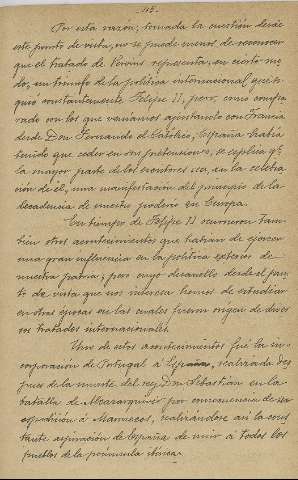 113.
Por esta razón, tomada la cuestión desde
este punto de vista, no se puede menos de reconocer
que el tratado de Vervins representa, en cierto mo-
do, un triunfo de la política internacional que si-
guió constantemente Felipe II, pero, como compa-
rado con los que veníamos ajustando con Francia
desde Don Fernando el Católico, España había
tenido que ceder en sus pretensiones, se explica qe
la mayor parte de los escritores vea, en la celebra-
ción de él, una manifestación del principio de la
decadencia de nuestro poderío en Europa.
En tiempo de Felipe II ocurrieron tam-
bién otros acontecimientos que habían de ejercer
una gran influencia en la política exterior de
nuestra patria; pero cuyo desarrollo desde el pun-
to de vista que nos interesa hemos de estudiar
en otras épocas en las cuales fueron origen de diver-
sos tratados internacionales.
Uno de estos acontecimientos fué la in-
corporación de Portugal á España, realizada des-
pues de la muerte del rey Don Sebastián en la
batalla de Alcazarquivir por consecuencia de su
expedición á Marruecos, realizándose así la cons-
tante aspiración de España de unir á todos los
pueblos de la península ibérica.